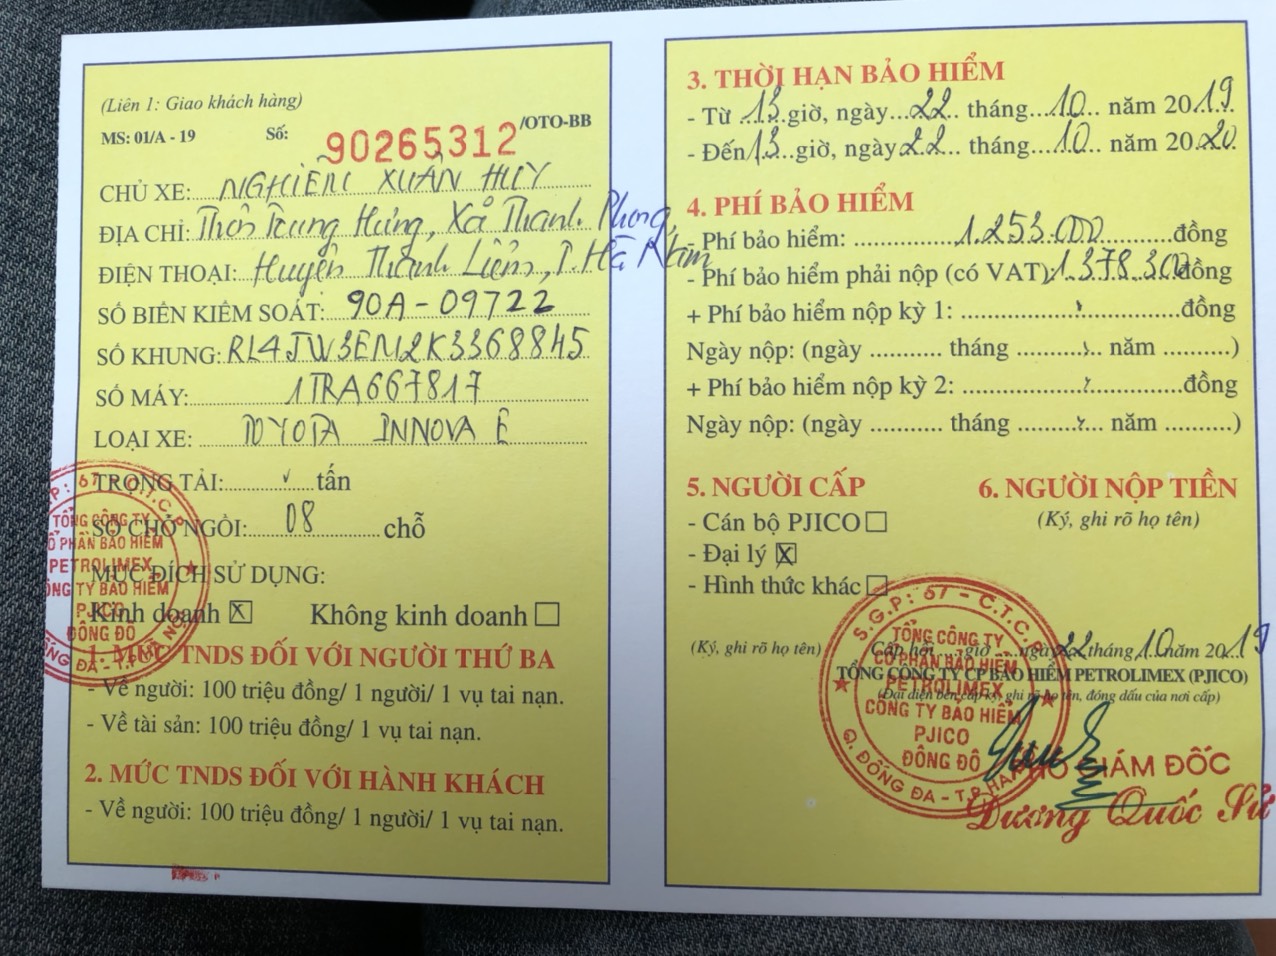 (Liên 1: Giao khách hàng)
MS: 01/A - 19 Số: 90265312/OTO-BB
CHỦ XE: NGHIÊM XUÂN HUY
ĐỊA CHỈ: Thôn Trung Hưng, Xã Thanh Phong,
ĐIỆN THOẠI: Huyện Thanh Liêm, T. Hà Nam
SỐ BIỂN KIỂM SOÁT: 90A-09722
SỐ KHUNG: RL4JW3EM2K3368845
SỐ MÁY: 1TRA667817
LOẠI XE: TOYOTA INNOVA E
TRỌNG TẢI: tấn
SỐ CHỖ NGỒI: 08 chỗ
MỤC ĐÍCH SỬ DỤNG:
Kinh doanh ☒ Không kinh doanh ☐
1. MỨC TNDS ĐỐI VỚI NGƯỜI THỨ BA
- Về người: 100 triệu đồng/ 1 người/ 1 vụ tai nạn.
- Về tài sản: 100 triệu đồng/ 1 vụ tai nạn.
2. MỨC TNDS ĐỐI VỚI HÀNH KHÁCH
- Về người: 100 triệu đồng/ 1 người/ 1 vụ tai nạn.
TỔNG CÔNG TY
CỔ PHẦN BẢO HIỂM
PETROLIMEX
CÔNG TY BẢO HIỂM
PJICO
ĐÔNG ĐÔ
3. THỜI HẠN BẢO HIỂM
- Từ 13 giờ, ngày 22 tháng 10 năm 2019
- Đến 13 giờ, ngày 22 tháng 10 năm 2020
4. PHÍ BẢO HIỂM
- Phí bảo hiểm: 1.253.000 đồng
- Phí bảo hiểm phải nộp (có VAT): 1.378.300 đồng
+ Phí bảo hiểm nộp kỳ 1: đồng
Ngày nộp: (ngày .......... tháng .......... năm ..........)
+ Phí bảo hiểm nộp kỳ 2: đồng
Ngày nộp: (ngày .......... tháng .......... năm ..........)
5. NGƯỜI CẤP 6. NGƯỜI NỘP TIỀN
- Cán bộ PJICO ☐ (Ký, ghi rõ họ tên)
- Đại lý ☒
- Hình thức khác ☐
(Ký, ghi rõ họ tên) Cấp hồi ..... giờ ....., ngày 22 tháng 10 năm 2019
TỔNG CÔNG TY CP BẢO HIỂM PETROLIMEX (PJICO)
(Đại diện bên cấp ký, ghi rõ họ tên, đóng dấu của nơi cấp)
S.G.P: 67 - C.T.C.P
TỔNG CÔNG TY
CỔ PHẦN BẢO HIỂM
PETROLIMEX
CÔNG TY BẢO HIỂM
PJICO
ĐÔNG ĐÔ
Q. ĐỐNG ĐA - T.P HÀ NỘI
PHÓ GIÁM ĐỐC
Dương Quốc Sử